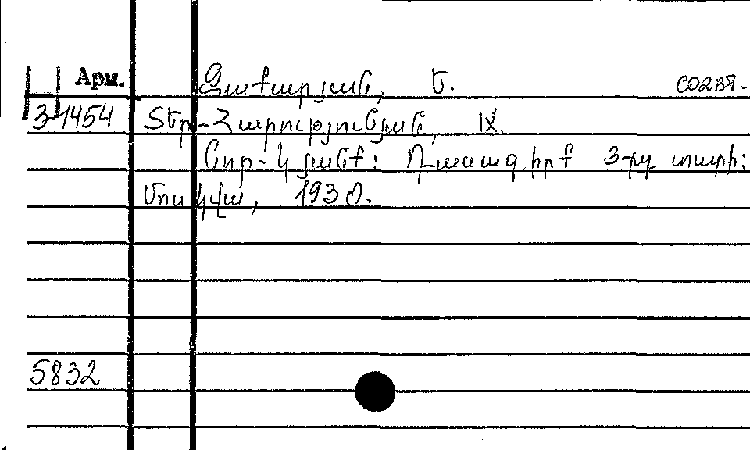 Арм. Զաքարյան, Ե. соавт.
3-1454 Տեր-Հարությունյան, Խ.
Նոր-կյանք: Դասագիրք 3-րդ տարի:
Մոսկվա, 1930.
5832